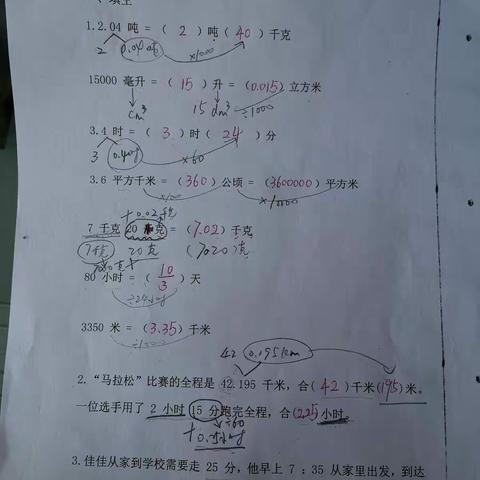 、填空
1.2.04 吨 = ( 2 ) 吨 ( 40 ) 千克
2 0.04吨 ×1000
15000 毫升 = ( 15 ) 升 = (0.015) 立方米
cm³ 15 dm³ ÷1000
3.4 时 = ( 3 ) 时 ( 24 ) 分
3 0.4时 ×60
3.6 平方千米 = (360) 公顷 = (3600000) 平方米
×100 ×10000
+0.02千克
7 千克 20 克 = (7.02) 千克
7千克 20克 (7020) 克
80 小时 = ( 10/3 ) 天
÷24
3350 米 = (3.35) 千米
÷1000
42 0.195km
2.“马拉松”比赛的全程是 42.195 千米，合( 42 ) 千米(195)米。
一位选手用了 2 小时 15 分跑完全程，合(2.25)小时。
÷60
3.佳佳从家到学校需要走 25 分，他早上 7：35 从家里出发，到达